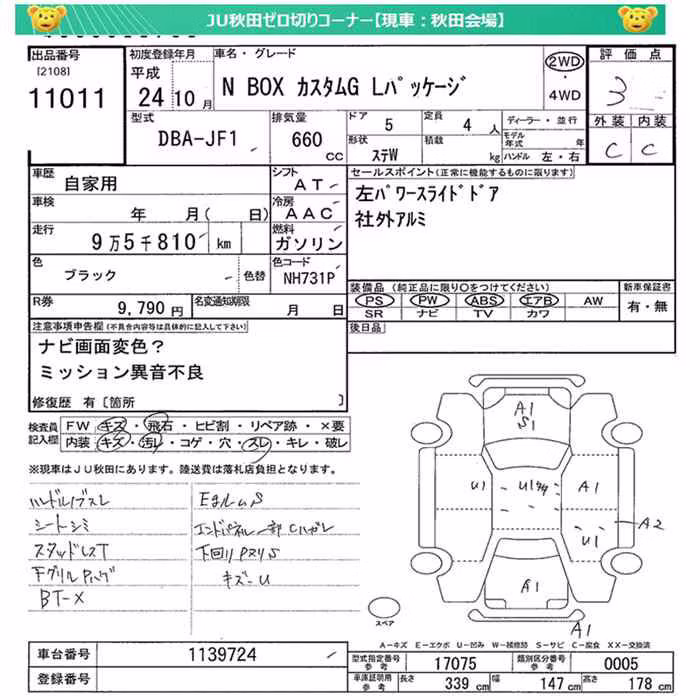 JU秋田ゼロ切りコーナー【現車：秋田会場】
出品番号
[2108]
11011
初度登録年月
平成
24 10月
車名・グレード
N BOX カスタムG Lパッケージ
2WD
・
4WD
評価点
3
型式
DBA-JF1
排気量
660
CC
ドア 5
定員 4 人
形状 ステW
積載 kg
ディーラー・並行
モデル年式 年
ハンドル 左・右
外装 内装
C C
車歴 自家用
シフト AT
車検 年 月( 日)
冷房 AAC
走行 9万5千810 km
燃料 ガソリン
色 ブラック
色替
色コード NH731P
R券 9,790円
名変通知期限 月 日
セールスポイント(正常に機能するものに限ります)
左パワースライドドア
社外アルミ
装備品(純正品に限り○をつけてください)
PS PW ABS エアB AW
SR ナビ TV カワ
新車保証書
有・無
後日品
注意事項申告欄(不具合内容等は具体的に記入して下さい)
ナビ画面変色？
ミッション異音不良
修復歴 有〔箇所 〕
検査員記入欄
FW キズ・飛石・ヒビ割・リペア跡・×要
内装 キズ・汚レ・コゲ・穴・スレ・キレ・破レ
※現車はJU秋田にあります。陸送費は落札店負担となります。
ハンドルノブスレ
シートシミ
スタッドレスT
FグリルPハゲ
BT-×
EタルームS
エンドパネル一部Cハガレ
下回りPスリS
キズ-U
A1
S1
U1
A1
A2
U1
A1
A1
スペア
A-キズ E-エクボ U-凹み W-補修跡 S-サビ C-腐食 XX-交換済
車台番号 1139724
登録番号
型式指定番号 参考 17075
類別区分番号 参考 0005
車庫証明用 参考 長さ 339 cm 幅 147 cm 高さ 178 cm